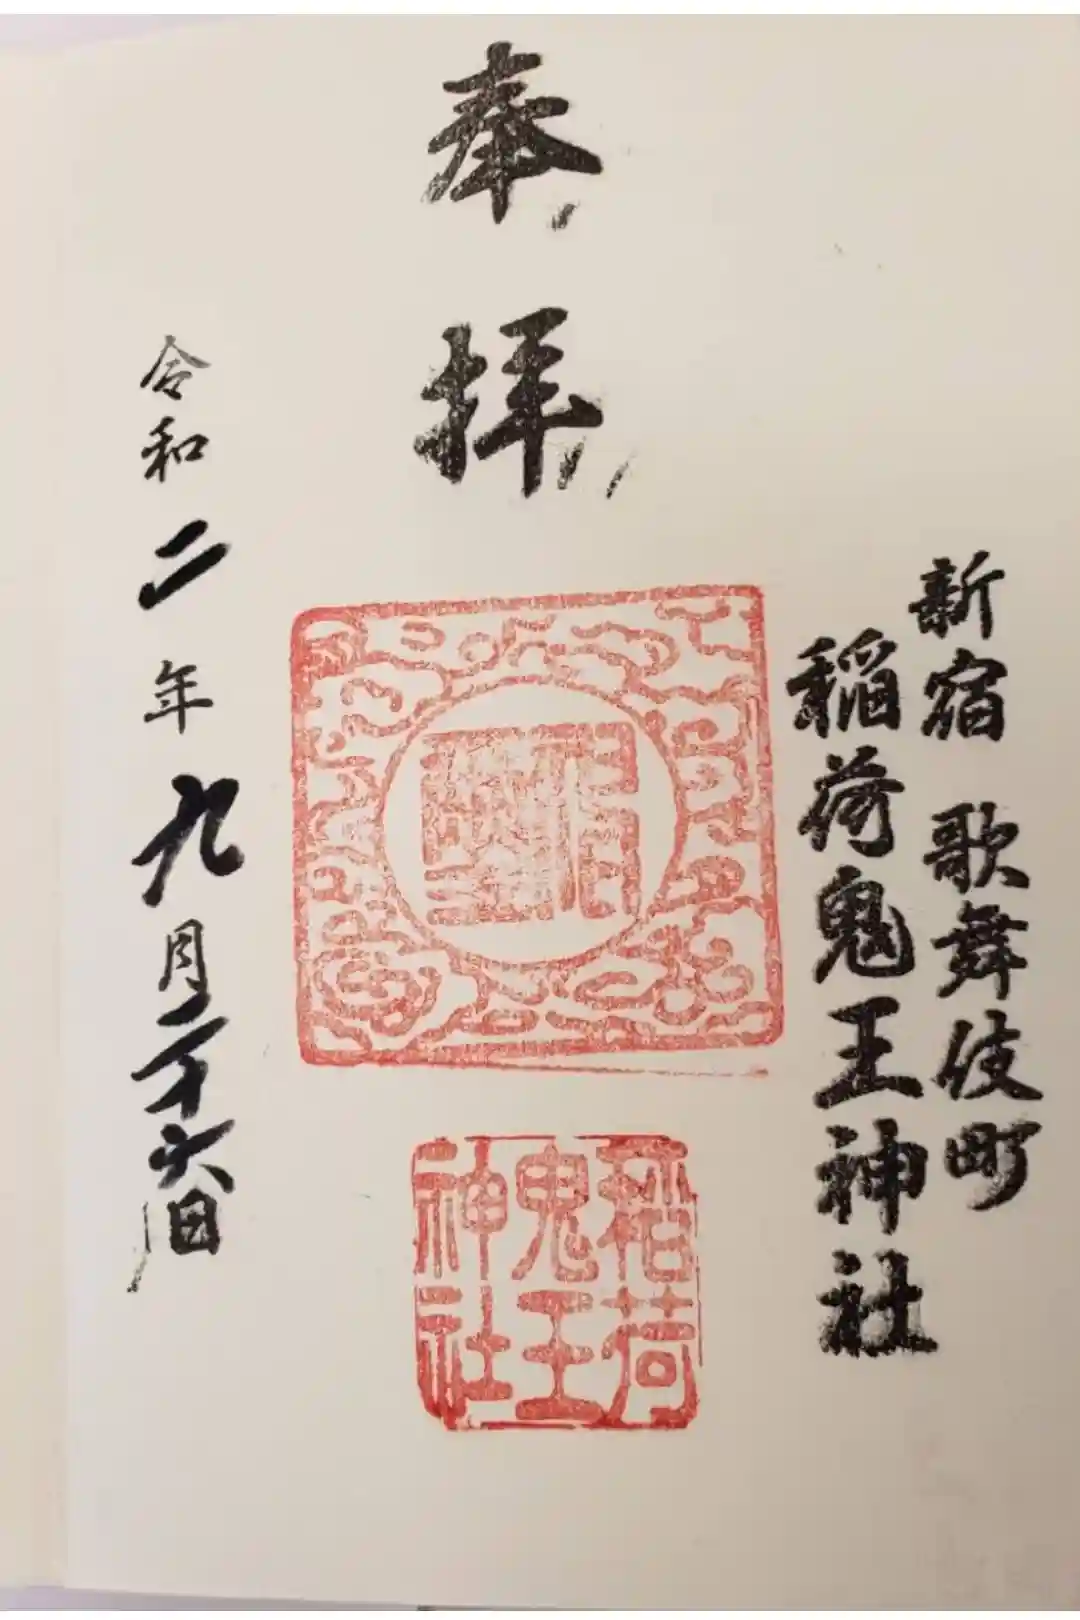 新宿 歌舞伎町
稲荷鬼王神社
奉拝
稲荷
鬼王
神社
令和二年九月二十六日